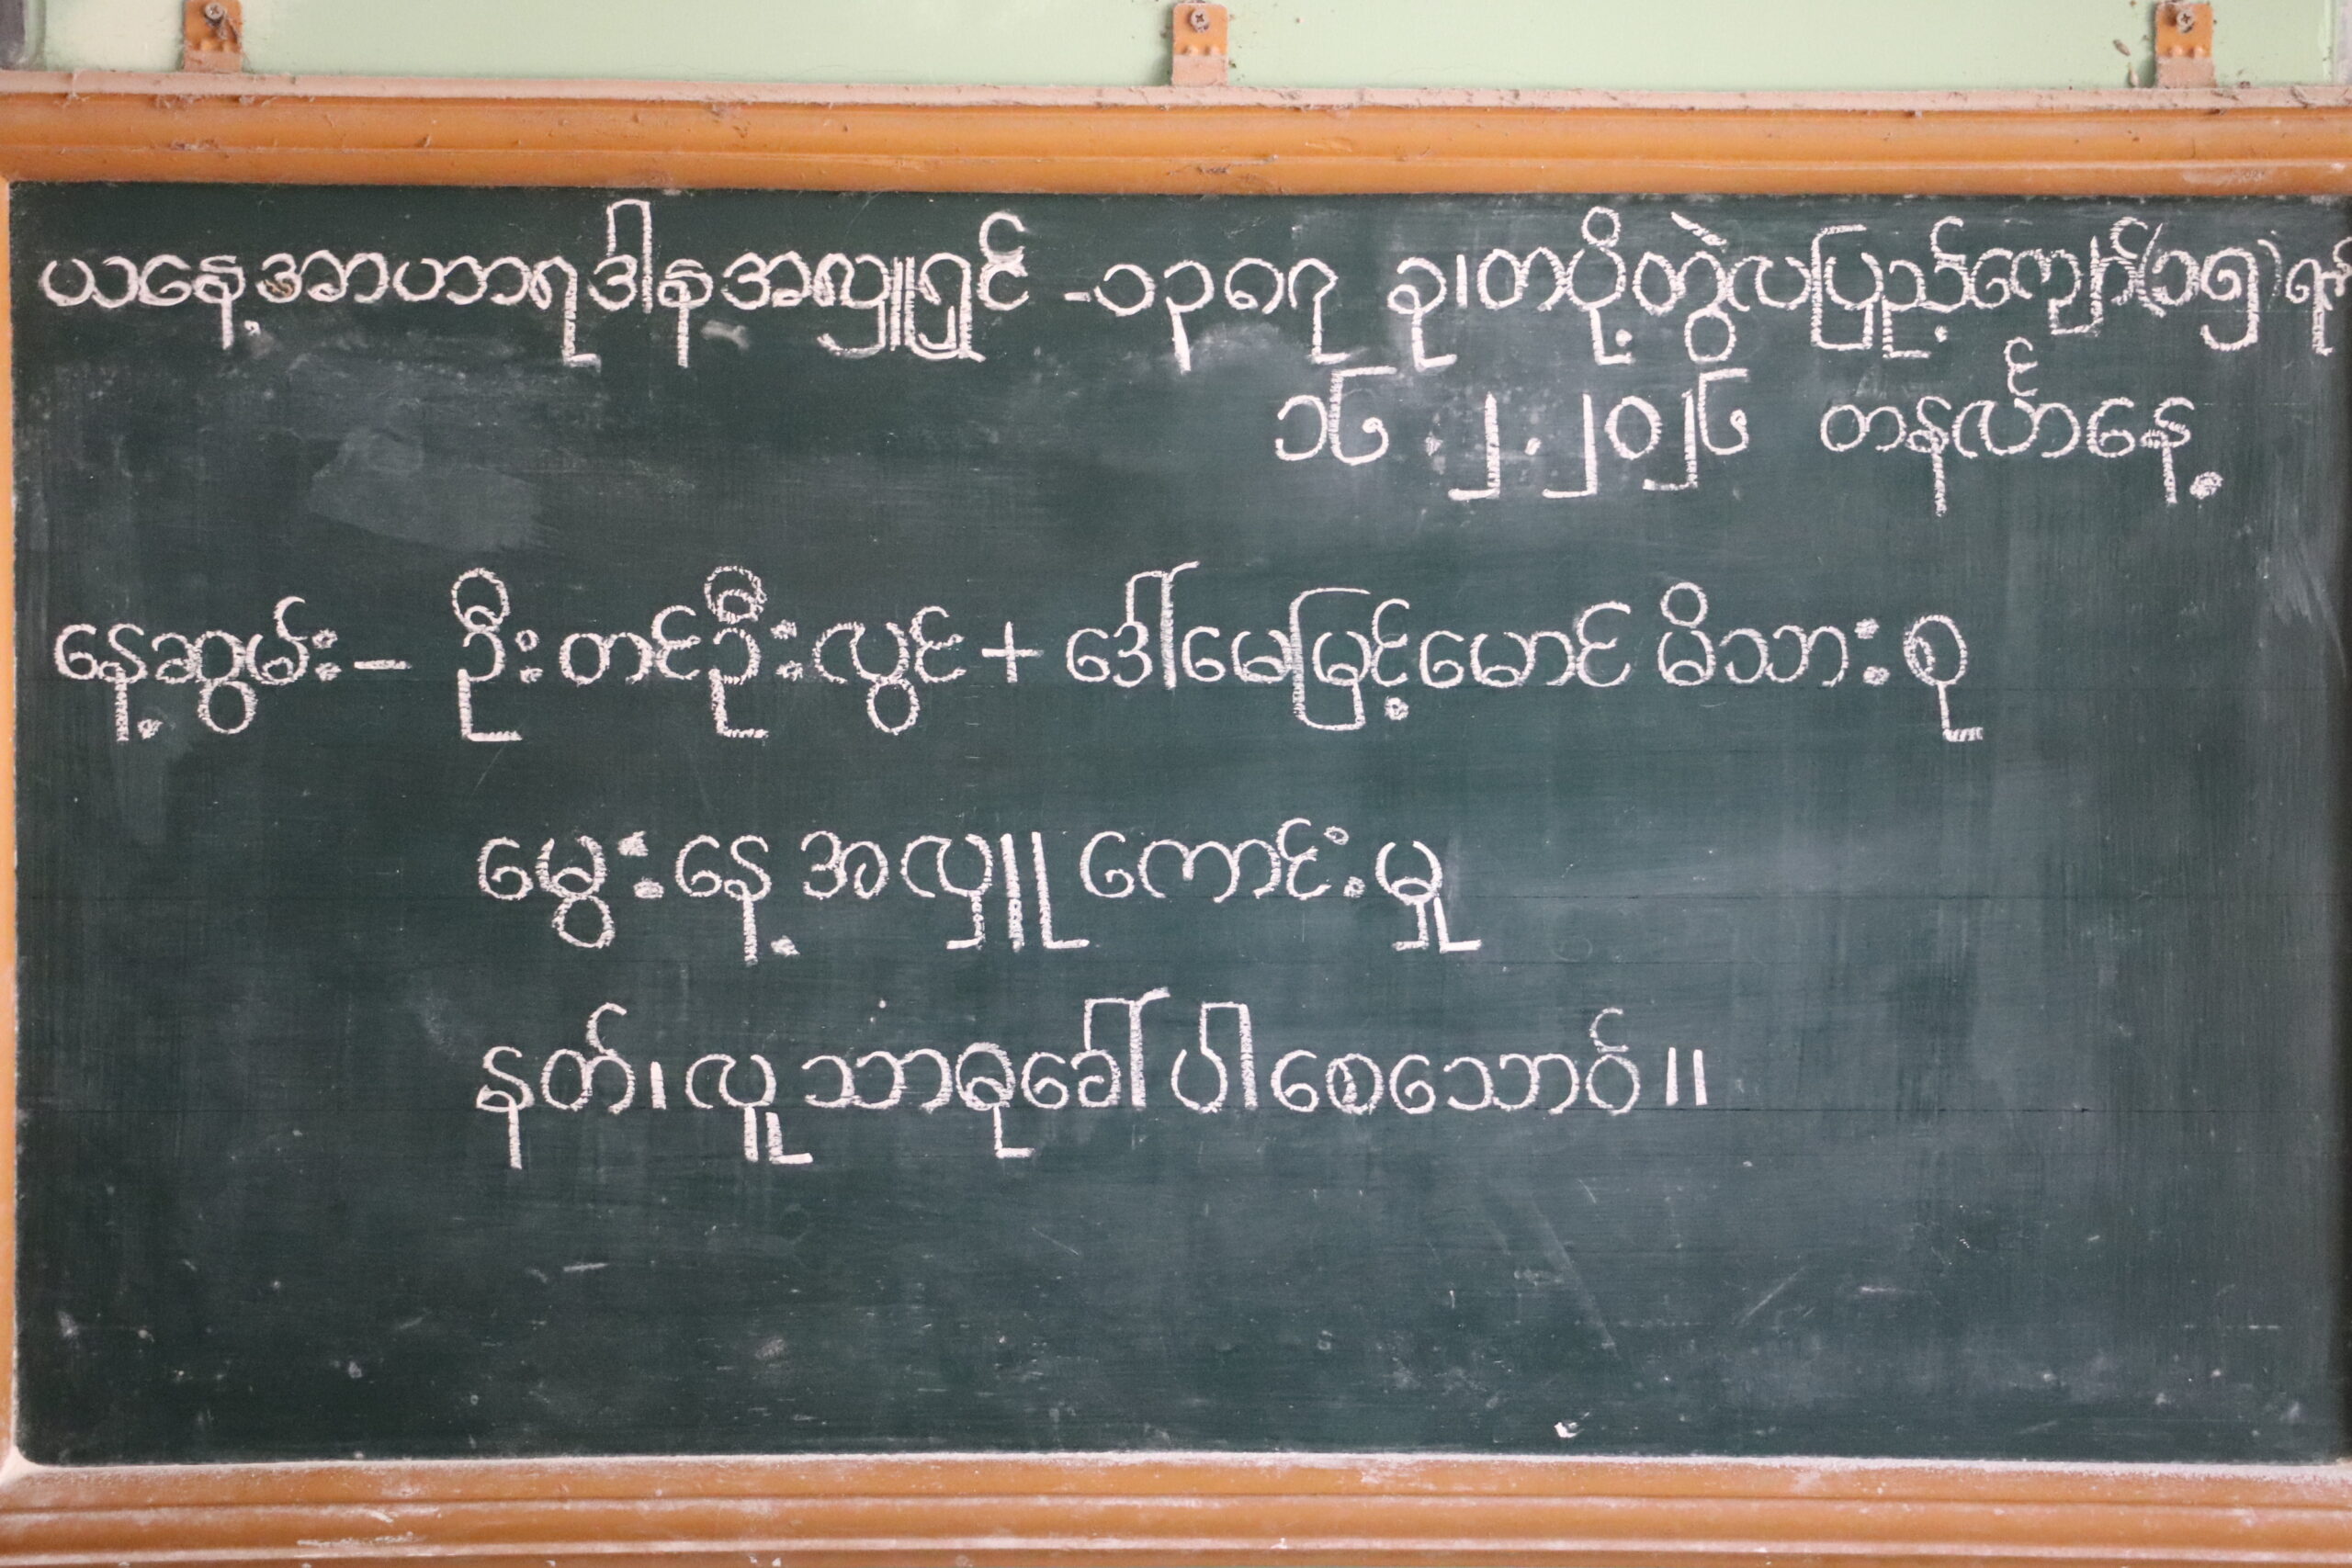 ယနေ့အာဟာရဒါနအလှူရှင် -၁၃၈၇ ခု၊တပို့တွဲလပြည့်ကျော်(၁၅)ရက်
၁၆.၂.၂၀၂၆ တနင်္လာနေ့
နေ့ဆွမ်း- ဦးတင်ဦးလွင်+ဒေါ်မေမြင့်မောင် မိသားစု
မွေးနေ့ အလှူ ကောင်းမှု
နတ်၊လူ သာဓုခေါ်ပါစေသောဝ်။